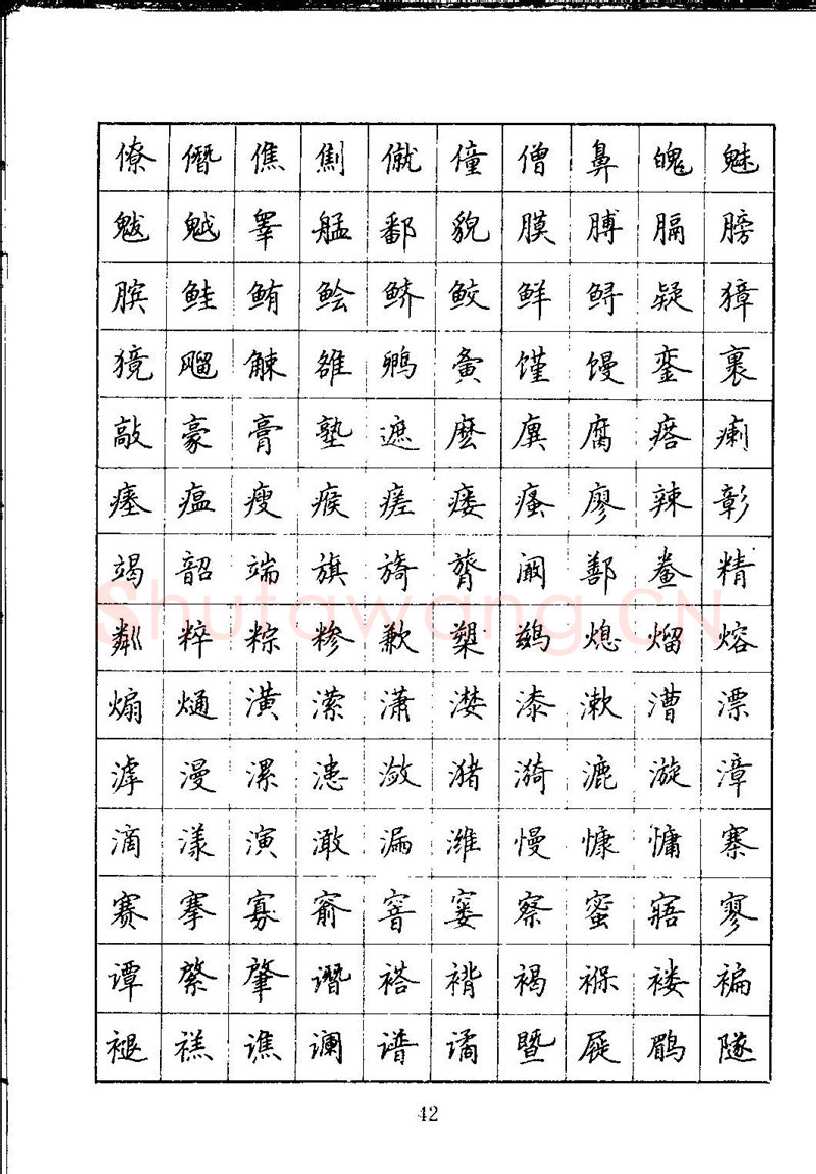 僚僭僬劁僦僮僧鼻魄魅
魃魆睾艋鄱貌膜膊膈膀
膑鲑鲔鲙鲚鲛鲜鲟疑獐
獍飗觫雒孵夤馑馒銮裹
敲豪膏塾遮麽廙腐瘩瘌
瘗瘟瘦瘊瘥瘘瘙廖辣彰
竭韶端旗旖膂阚鄯鲞精
粼粹粽糁歉槊鹚熄熘熔
煽熥潢潆潇漤漆漱漕漂
滹漫漯漶潋潴漪漉漩漳
滴漾演澉漏潍慢慷慵寨
赛搴寡窬窨窭察蜜寤寥
谭綮肇谮褡褙褐褓褛褊
褪禚谯谰谱谲暨屣鹛隧
Shufawang.CN
42